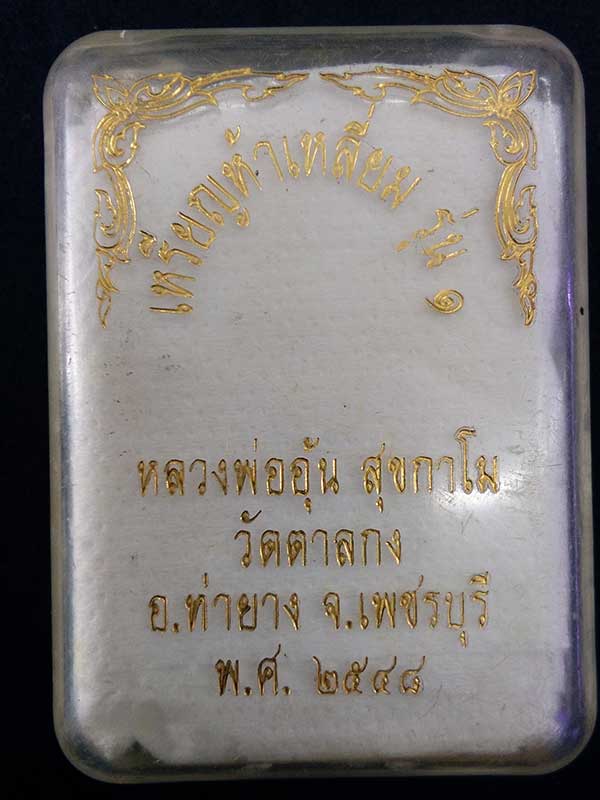 เหรียญห้าเหลี่ยม รุ่น ๑
หลวงพ่ออุ้น สุขกาโม
วัดตาลกง
อ.ท่ายาง จ.เพชรบุรี
พ.ศ. ๒๕๔๘